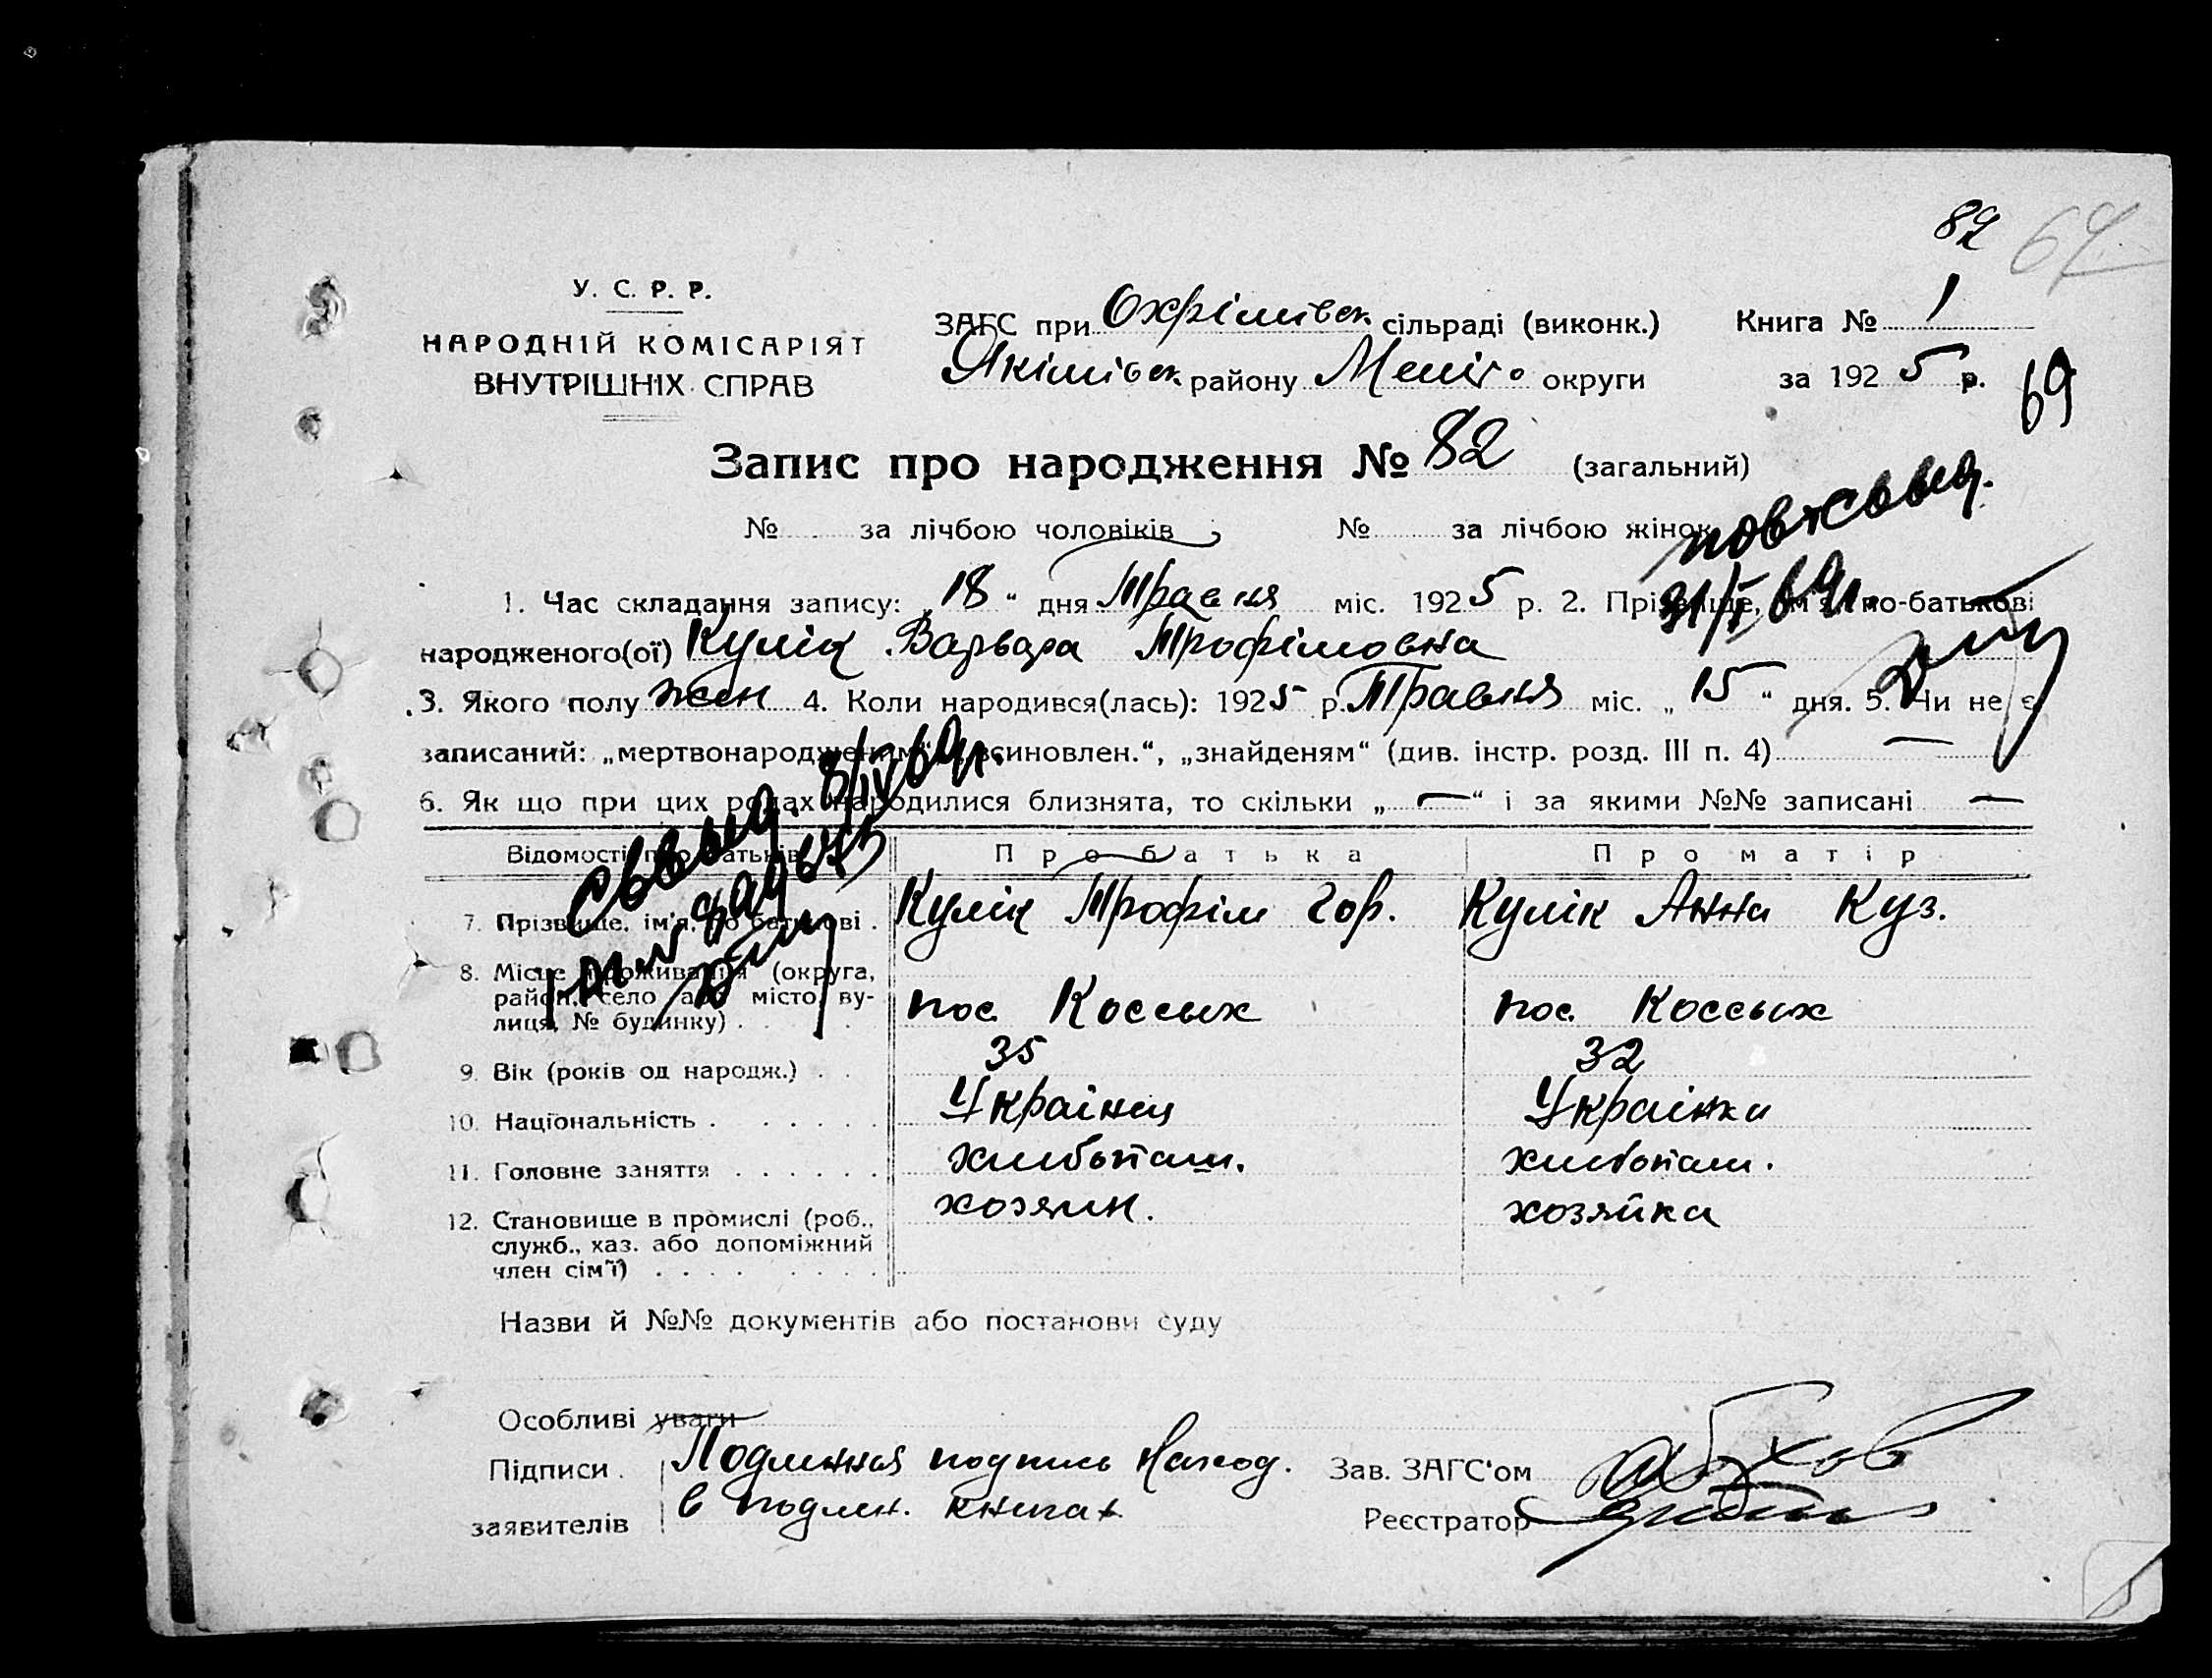 82 67
У. С. Р. Р.
НАРОДНІЙ КОМІСАРІЯТ
ВНУТРІШНІХ СПРАВ
ЗАГС при Охрімівск сільраді (виконк.)
Якімівск району Меліт. округи
Книга № 1
за 192 5 р.
69
Запис про народження № 82 (загальний)
№ за лічбою чоловіків № за лічбою жінок
повт свыд.
31/I 69г.
1. Час складання запису: „18“ дня Травня міс. 1925 р. 2. Прізвище, ім'я, по-батькові
народженого(ої) Кулік Варвара Трофімовна
3. Якого полу жен 4. Коли народився(лась): 1925 р. Травня міс. „15“ дня. 5. Чи не є
записаний: „мертвонародженим“, „всиновлен.“, „знайденям“ (див. інстр. розд. III п. 4) —
6. Як що при цих родах народилися близнята, то скільки „—“ і за якими №№ записані —
свыд. 8/IV 69г.
Відомості про батьків Про батька Про матір
7. Прізвище, ім'я, по батькові . Кулік Трофім Гор. Кулік Анна Куз.
8. Місце проживання (округа,
район, село або місто, ву-
лиця, № будинку) . . пос. Коссых пос. Коссых
9. Вік (років од народж.) . . 35 32
10. Національність . . . . . . Українец Українка
11. Головне заняття . . . . . . хлибопаш. хлибопаш.
12. Становище в промислі (роб.,
служб., хаз. або допоміжний
член сім'ї) . . . . . . . . хозяин. хозяйка
Назви й №№ документів або постанови суду
Особливі уваги
Підписи Подлинная подпись наход. Зав. ЗАГС'ом
заявителів в подлин. книгах Реєстратор